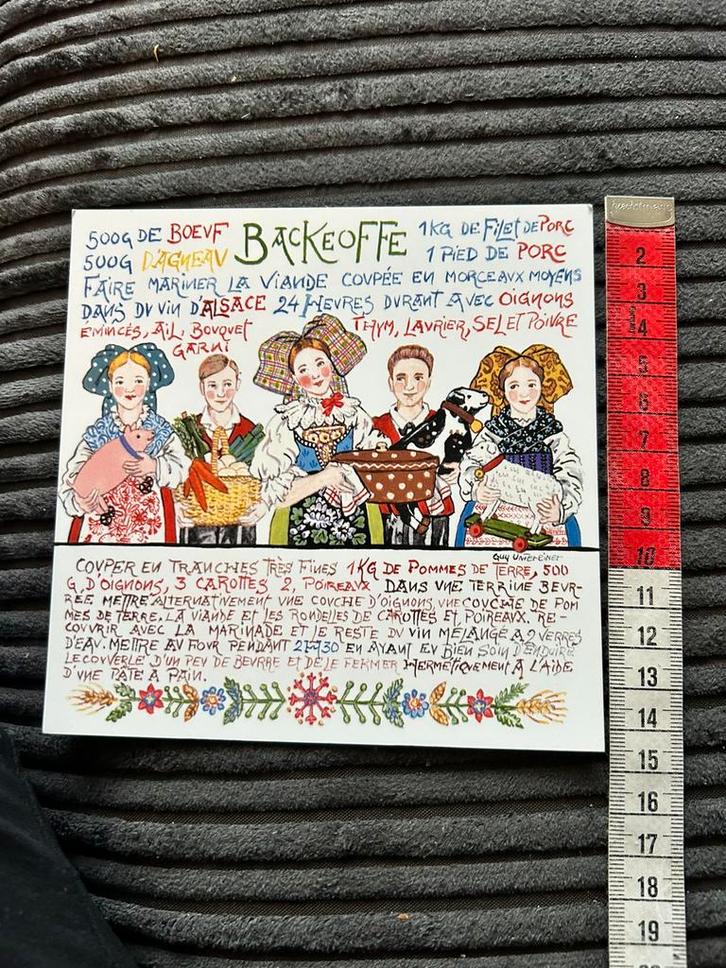 BACKEOFFE
500G DE BOEUF
500G D'AGNEAU
1KG DE FILET DE PORC
1 PIED DE PORC
FAIRE MARINER LA VIANDE COUPÉE EN MORCEAUX MOYENS
DANS DU VIN D'ALSACE 24 HEURES DURANT AVEC OIGNONS
EMINCÉS, AIL, BOUQUET GARNI
THYM, LAURIER, SEL ET POIVRE
GUY UNTEREINER
COUPER EN TRANCHES TRÈS FINES 1KG DE POMMES DE TERRE, 500
G D'OIGNONS, 3 CAROTTES 2, POIREAUX. DANS UNE TERRINE BEUR-
RÉE METTRE ALTERNATIVEMENT UNE COUCHE D'OIGNONS, UNE COUCHE DE POM
MES DE TERRE, LA VIANDE ET LES RONDELLES DE CAROTTES ET POIREAUX. RE-
COUVRIR AVEC LA MARINADE ET LE RESTE DU VIN MELANGÉ A 2 VERRES
D'EAU. METTRE AU FOUR PENDANT 2H30 EN AYANT EU BIEN SOIN D'ENDUIRE
LE COUVERCLE D'UN PEU DE BEURRE ET DE LE FERMER HERMETIQUEMENT À L'AIDE
D'UNE PATE A PAIN.
2
3
4
5
6
7
8
9
10
11
12
13
14
15
16
17
18
19